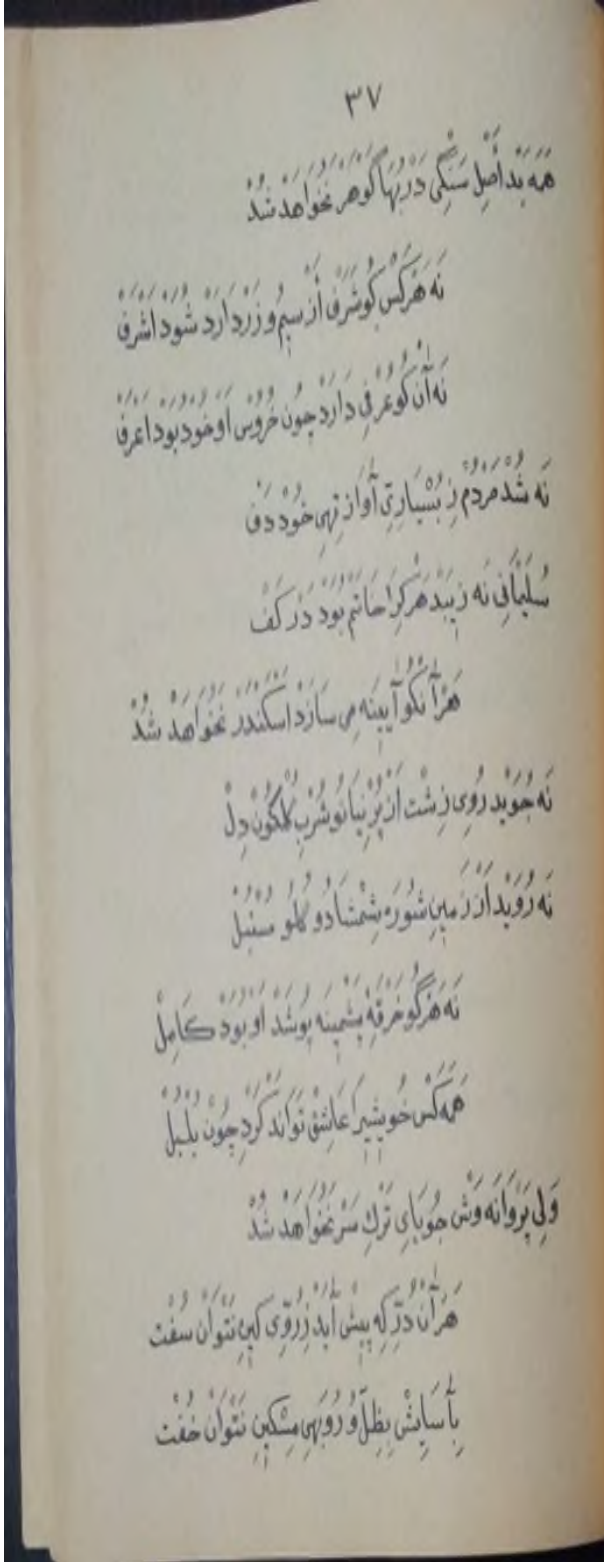 ۳۷
هَمَه بَدْ اَصْلِ سَنْگِی دَرْ بَهَا گَوْهَر نَخَواهَدْ شُدْ
نَه هَرْکَسْ کُو شَرَفْ اَزْ سِیمُ و زَرْ دَارَدْ شَوَدْ اَشْرَفْ
نَه آنْ کُو عُرْفِی دَارَدْ چُونْ خُرُوسْ اَوْ خُودْ بُوَدْ اَعْرَفْ
نَه شُدْ مَرْدُمْ زِ بِسْیَارِیِّ آوَازِ تِهِی خُودْ دَفْ
سُلَیْمَانِی نَه زِیبَدْ هَرْکِرَا خَاتَم بُوَدْ دَرْ کَفْ
هَرْ آنْکُو آیِینَه مِی سَازَدْ اِسْکَنْدَرْ نَخَواهَدْ شُدْ
نَه جُویَدْ رُویِ زِشْت اَزْ پَرْنِیَانُو شُرْبِ گُلْگُونْ دِلْ
نَه رُویَدْ اَزْ زَمِینِ شُورَه شِمْشَادُو گُلُو سُنْبُلْ
نَه هَرْ گُو خِرْقَهْ پَشْمِینَه پُوشَدْ اَوْ بُوَدْ کَامِلْ
هَمَه کَسْ خُویشِیرَا عَاشِقْ تَوَانَدْ کَرْدْ چُونْ بُلْبُلْ
وَلِی پَرْوَانَه وَشْ جُویَایِ تَرْكِ سَرْ نَخَواهَدْ شُدْ
هَرْ آنْ دُرِّ کِه پِیشْ آیَدْ زِ رُویِ کِینِ نَتَوَانْ سُفْت
بِآسَایِشْ بِظِلِّ رُوبَهِی مِسْکِینِ نَتَوَانْ خُفْت